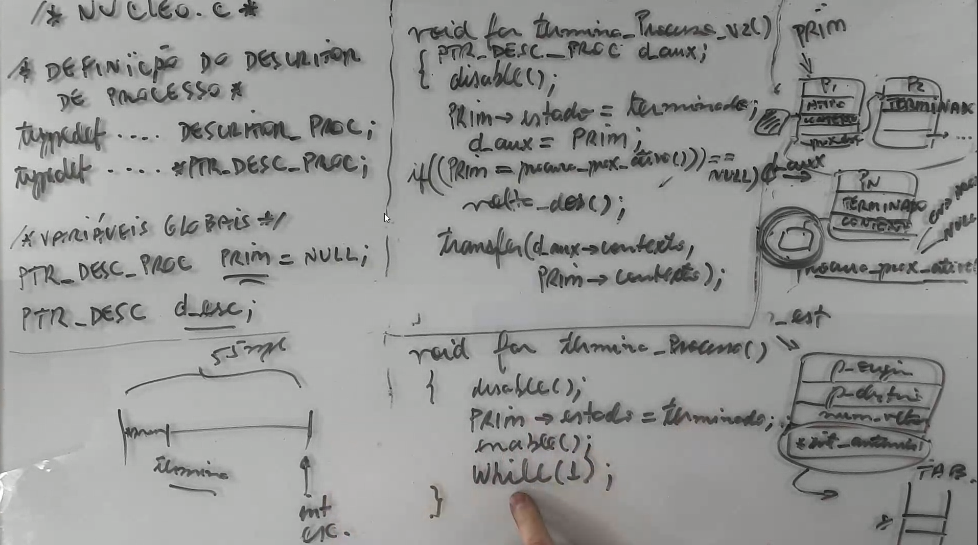 /* NUCLEO.C *
* DEFINIÇÃO DO DESCRITOR
DE PROCESSO *
typedef .... DESCRITOR_PROC;
typedef .... *PTR_DESC_PROC;
/* VARIÁVEIS GLOBAIS */
PTR_DESC_PROC PRIM = NULL;
PTR_DESC d_esc;
termina
int
void far termina_Processo_v2()
{ PTR_DESC_PROC d_aux;
disable();
PRIM → estado = terminado;
d_aux = PRIM;
if((PRIM = procura_prox_ativo()) == NULL)
transfer(d_aux→contexto,
PRIM→contexto);
void far termina_Processo()
{ disable();
PRIM → estado = terminado;
enable();
while(1);
}
PRIM
P1
ATIVO
CONTEXTO
P2
TERMINADO
...
d_aux
PN
TERMINADO
CONTEXTO
procura_prox_ativo
_est
p_origin
*int_anterior
TAB.